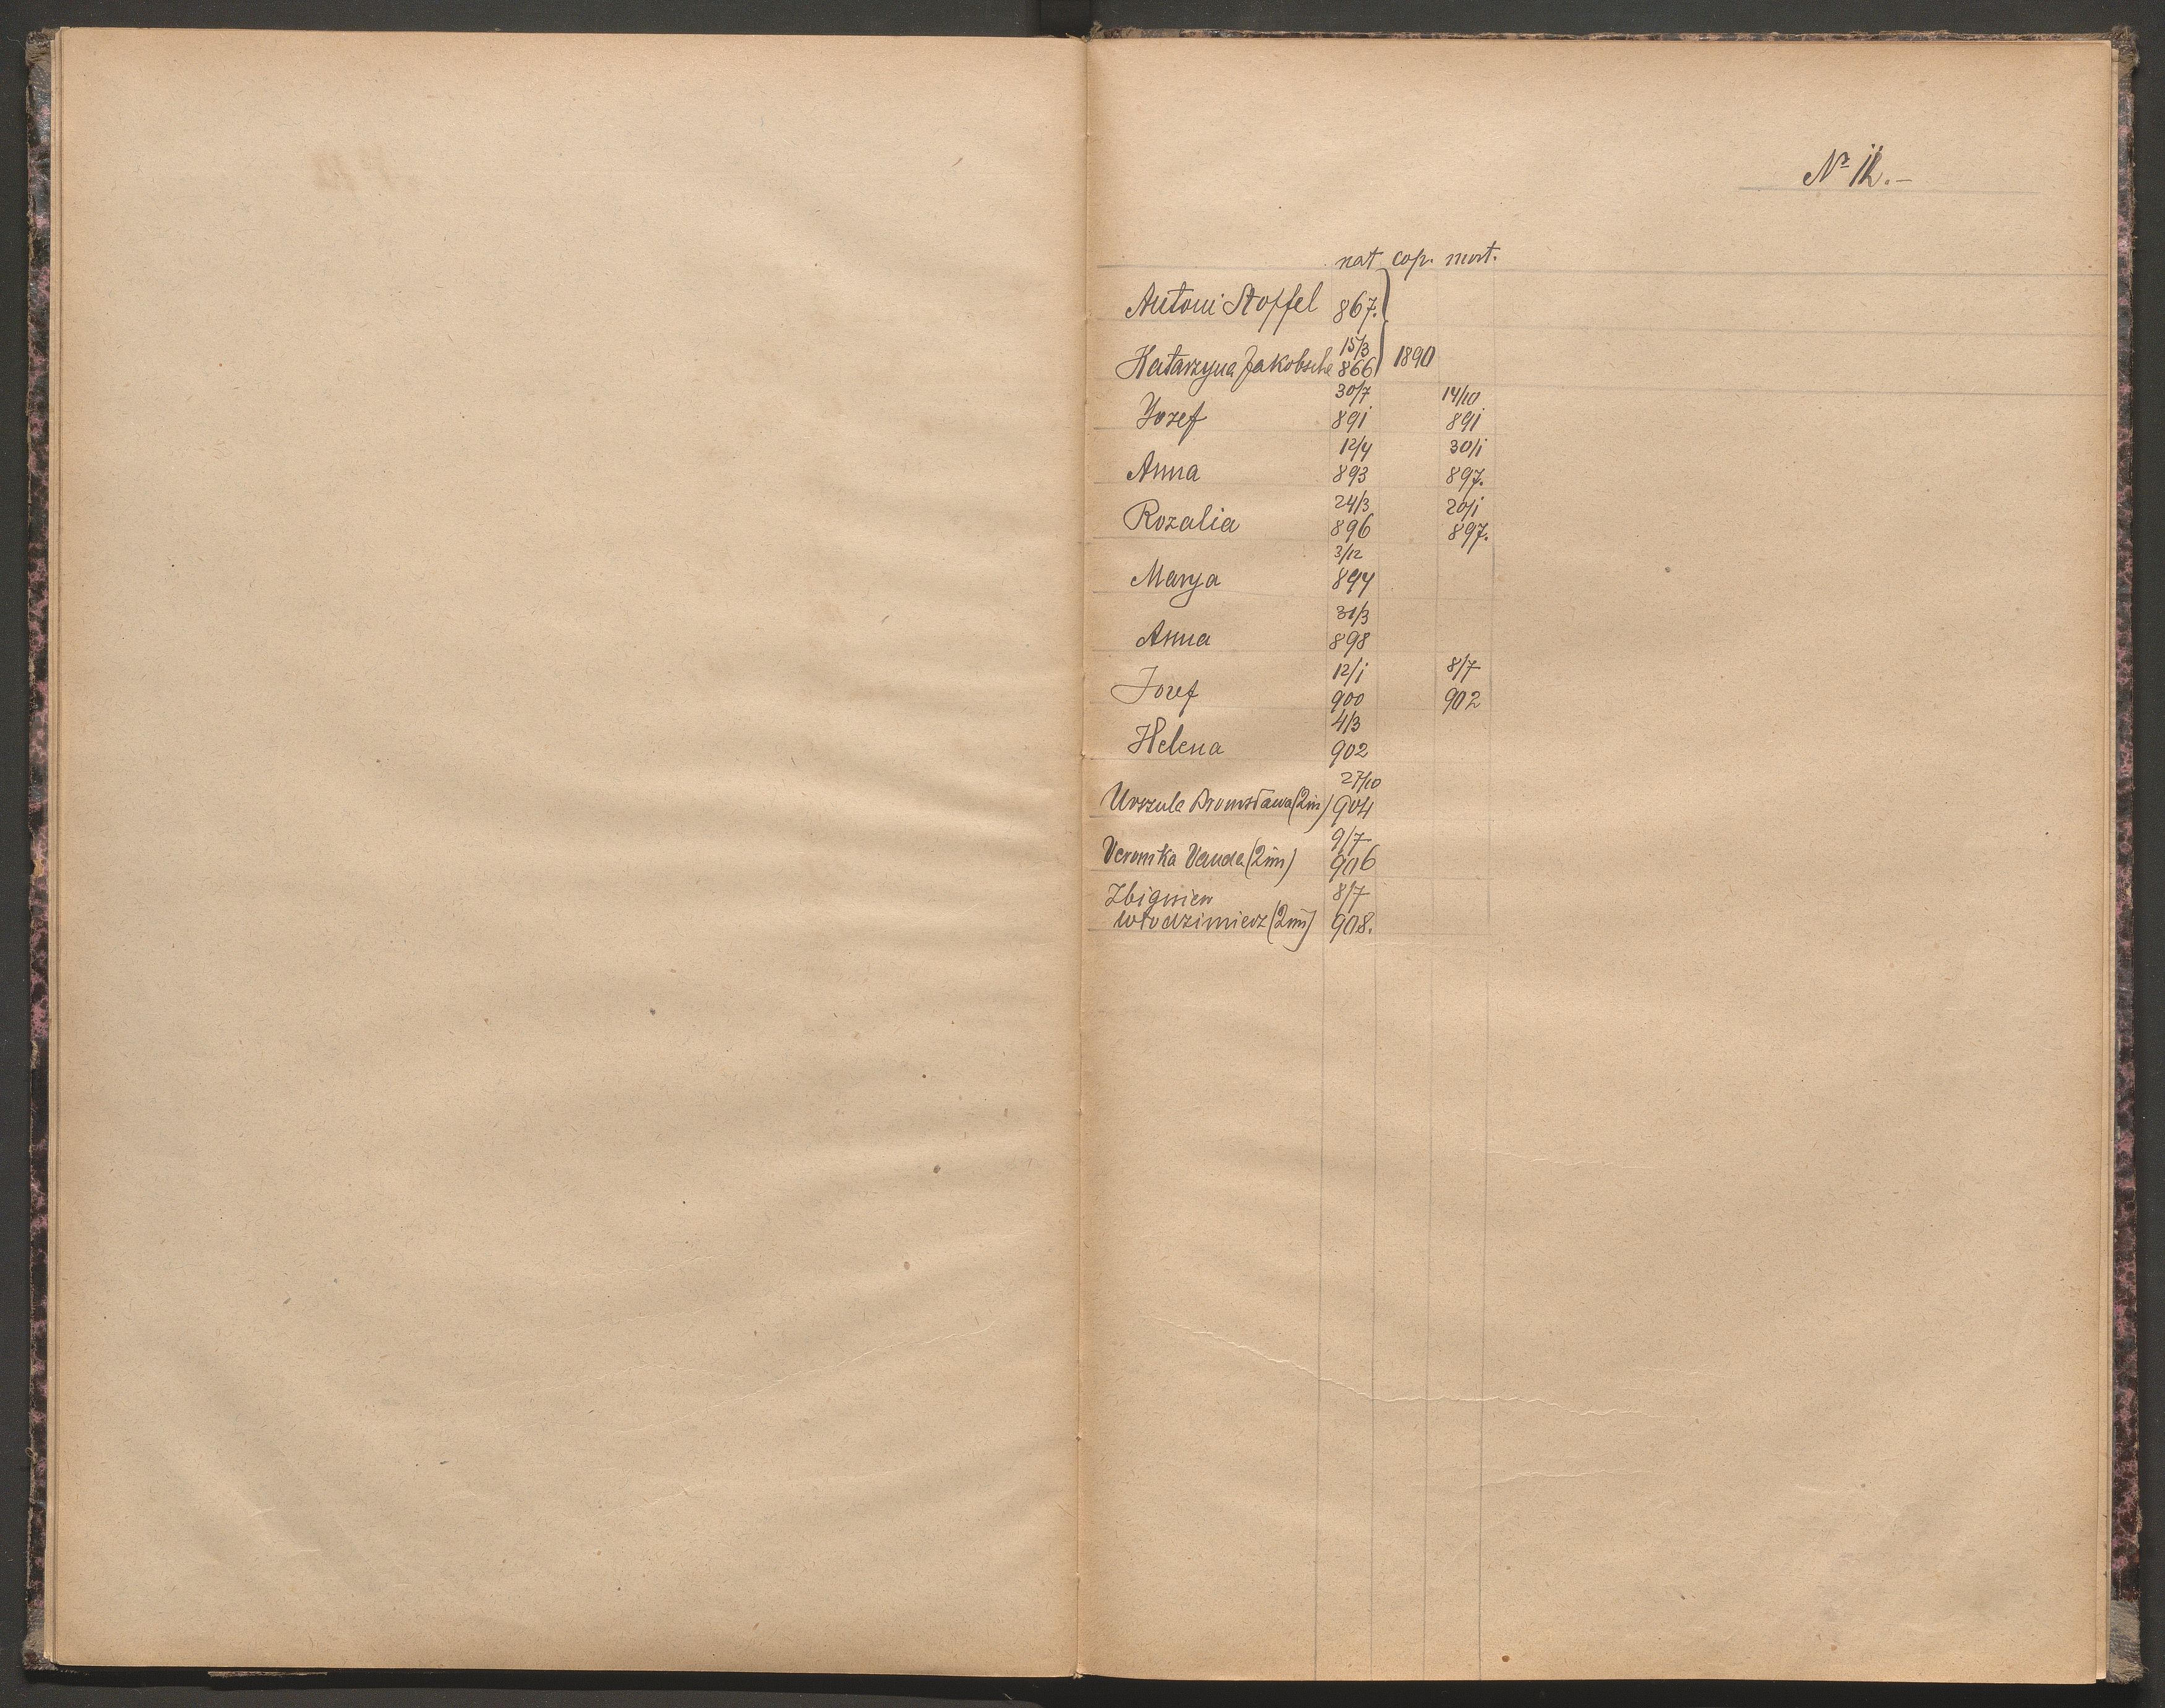 Nr 12.–
nat cop. mort.
Antoni Stoffel 867.
15/3
Katarzyna Jakobsche 866 1890
30/7 14/10
Jozef 891 891
12/4 30/1
Anna 893 897.
24/3 20/1
Rozalia 896 897.
3/12
Marya 894
31/3
Anna 898
12/1 8/7
Jozef 900 902
4/3
Helena 902
27/10
Urszula Bronisława (2im) 904
9/7
Veronika Vanda (2im) 906
Zbigniew 8/7
Włodzimierz (2im) 908.